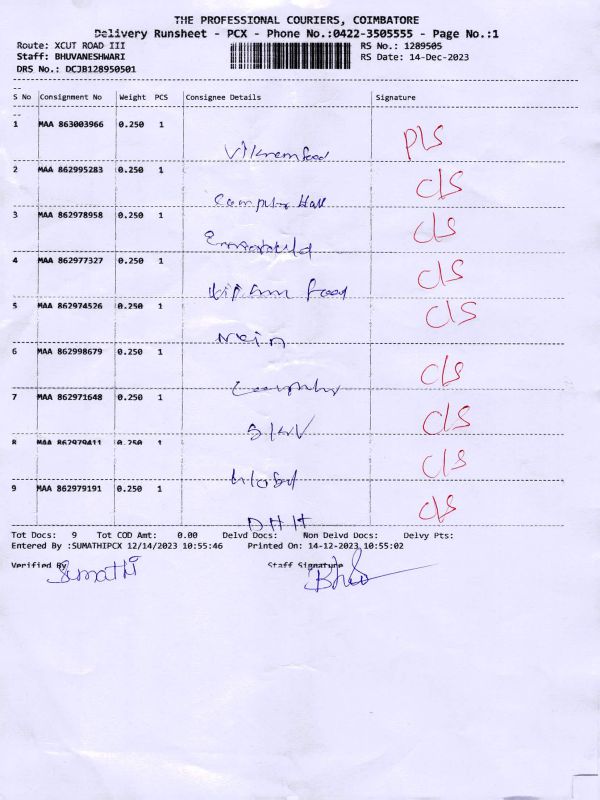 THE PROFESSIONAL COURIERS, COIMBATORE
Delivery Runsheet - PCX - Phone No.:0422-3505555 - Page No.:1
Route: XCUT ROAD III RS No.: 1289505
Staff: BHUVANESHWARI RS Date: 14-Dec-2023
DRS No.: DCJB128950501
S No Consignment No Weight PCS Consignee Details Signature
1 MAA 863003966 0.250 1 PLS
Vikram food
2 MAA 862995283 0.250 1 CLS
Computer Hall
3 MAA 862978958 0.250 1 CLS
Emerald
4 MAA 862977327 0.250 1 CLS
food
5 MAA 862974526 0.250 1 CLS
6 MAA 862998679 0.250 1 CLS
7 MAA 862971648 0.250 1 CLS
8 MAA 862979411 0.250 1 CLS
9 MAA 862979191 0.250 1 CLS
Tot Docs: 9 Tot COD Amt: 0.00 Delvd Docs: Non Delvd Docs: Delvy Pts:
Entered By :SUMATHIPCX 12/14/2023 10:55:46 Printed On: 14-12-2023 10:55:02
Verified By Staff Signature
Sumathi